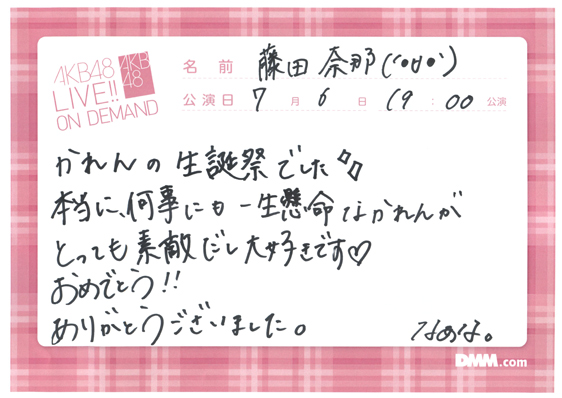 AKB48
LIVE!!
ON DEMAND
AKB
48
名前 藤田 奈那(´•ڡ•`)
公演日 7月6日 19:00公演
かれんの生誕祭でした
本当に、何事にも一生懸命なかれんが
とっても素敵だし大好きです♡
おめでとう!!
ありがとうございました。
なぁな。
DMM.com